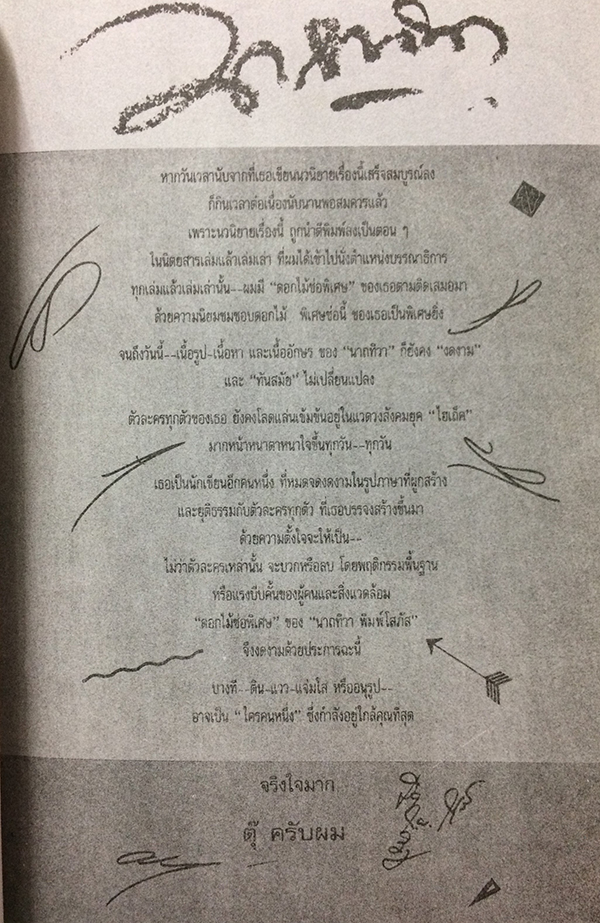 หากวันเวลานับจากที่เธอเขียนนวนิยายเรื่องนี้เสร็จสมบูรณ์ลง
ก็กินเวลาต่อเนื่องนับนานพอสมควรแล้ว
เพราะนวนิยายเรื่องนี้ ถูกนำตีพิมพ์ลงเป็นตอน ๆ
ในนิตยสารเล่มแล้วเล่มเล่า ที่ผมได้เข้าไปนั่งตำแหน่งบรรณาธิการ
ทุกเล่มแล้วเล่มเล่านั้น--ผมมี “ดอกไม้ช่อพิเศษ” ของเธอตามติดเสมอมา
ด้วยความนิยมชมชอบดอกไม้ พิเศษช่อนี้ ของเธอเป็นพิเศษยิ่ง
จนถึงวันนี้--เนื้อรูป-เนื้อหา และเนื้ออักษร ของ “นาถทิวา” ก็ยังคง “งดงาม”
และ “ทันสมัย” ไม่เปลี่ยนแปลง
ตัวละครทุกตัวของเธอ ยังคงโลดแล่นเข้มข้นอยู่ในแวดวงสังคมยุค “ไฮเถ็ค”
มากหน้าหนาตาหนาใจขึ้นทุกวัน--ทุกวัน
เธอเป็นนักเขียนอีกคนหนึ่ง ที่หมดจดงดงามในรูปภาษาที่ผูกสร้าง
และยุติธรรมกับตัวละครทุกตัว ที่เธอบรรจงสร้างขึ้นมา
ด้วยความตั้งใจจะให้เป็น--
ไม่ว่าตัวละครเหล่านั้น จะบวกหรือลบ โดยพฤติกรรมพื้นฐาน
หรือแรงบีบคั้นของผู้คนและสิ่งแวดล้อม
“ดอกไม้ช่อพิเศษ” ของ “นาถทิวา พิมพ์โสภัส”
จึงงดงามด้วยประการฉะนี้
บางที--ดิน-แวว-แจ่มใส หรืออนุรูป--
อาจเป็น “ใครคนหนึ่ง” ซึ่งกำลังอยู่ใกล้คุณที่สุด
จริงใจมาก
ตุ๊ ครับผม